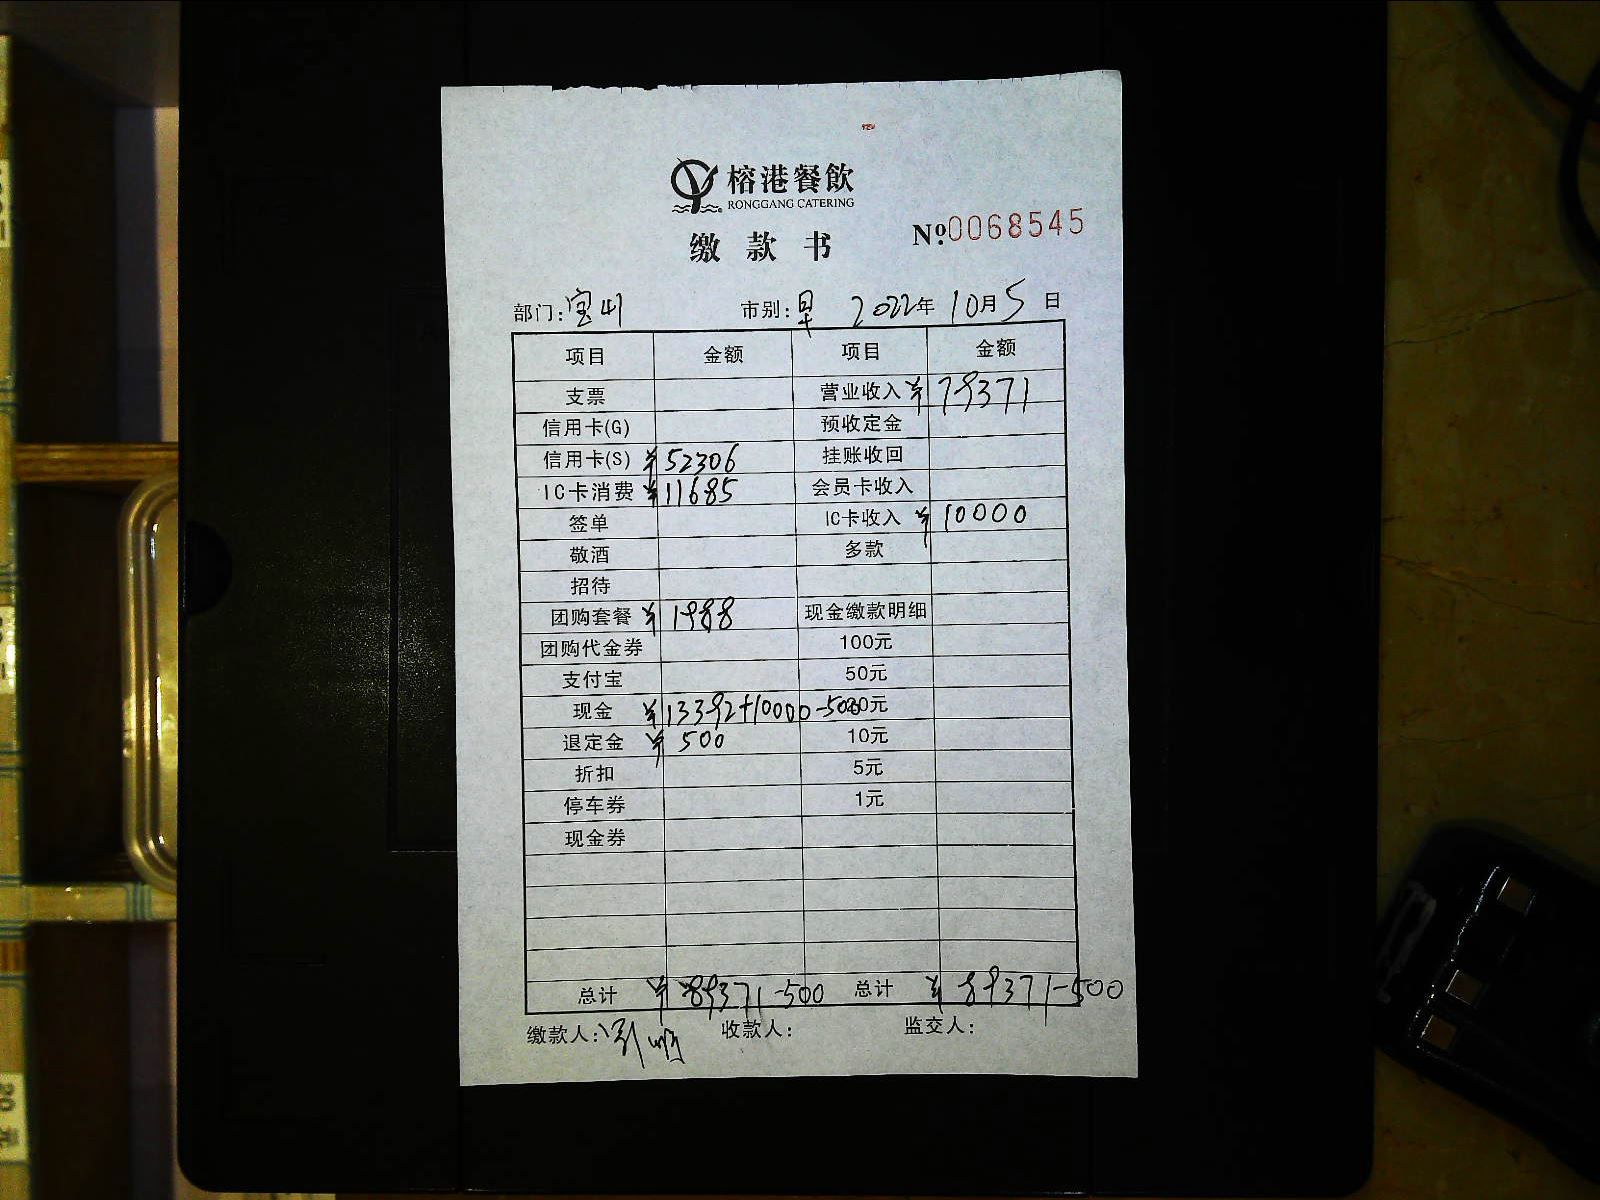 榕港餐飲
RONGGANG CATERING
缴款书
№0068545
部门:宝山 市别:早 2022年10月5日
项目 金额 项目 金额
支票 营业收入 ¥79371
信用卡(G) 预收定金
信用卡(S) ¥52306 挂账收回
IC卡消费 ¥11685 会员卡收入
签单 IC卡收入 ¥10000
敬酒 多款
招待
团购套餐 ¥1988 现金缴款明细
团购代金券 100元
支付宝 50元
现金 ¥13392+10000-500 20元
退定金 ¥500 10元
折扣 5元
停车券 1元
现金券
总计 ¥89371-500 总计 ¥89371-500
缴款人: 收款人: 监交人:
20元